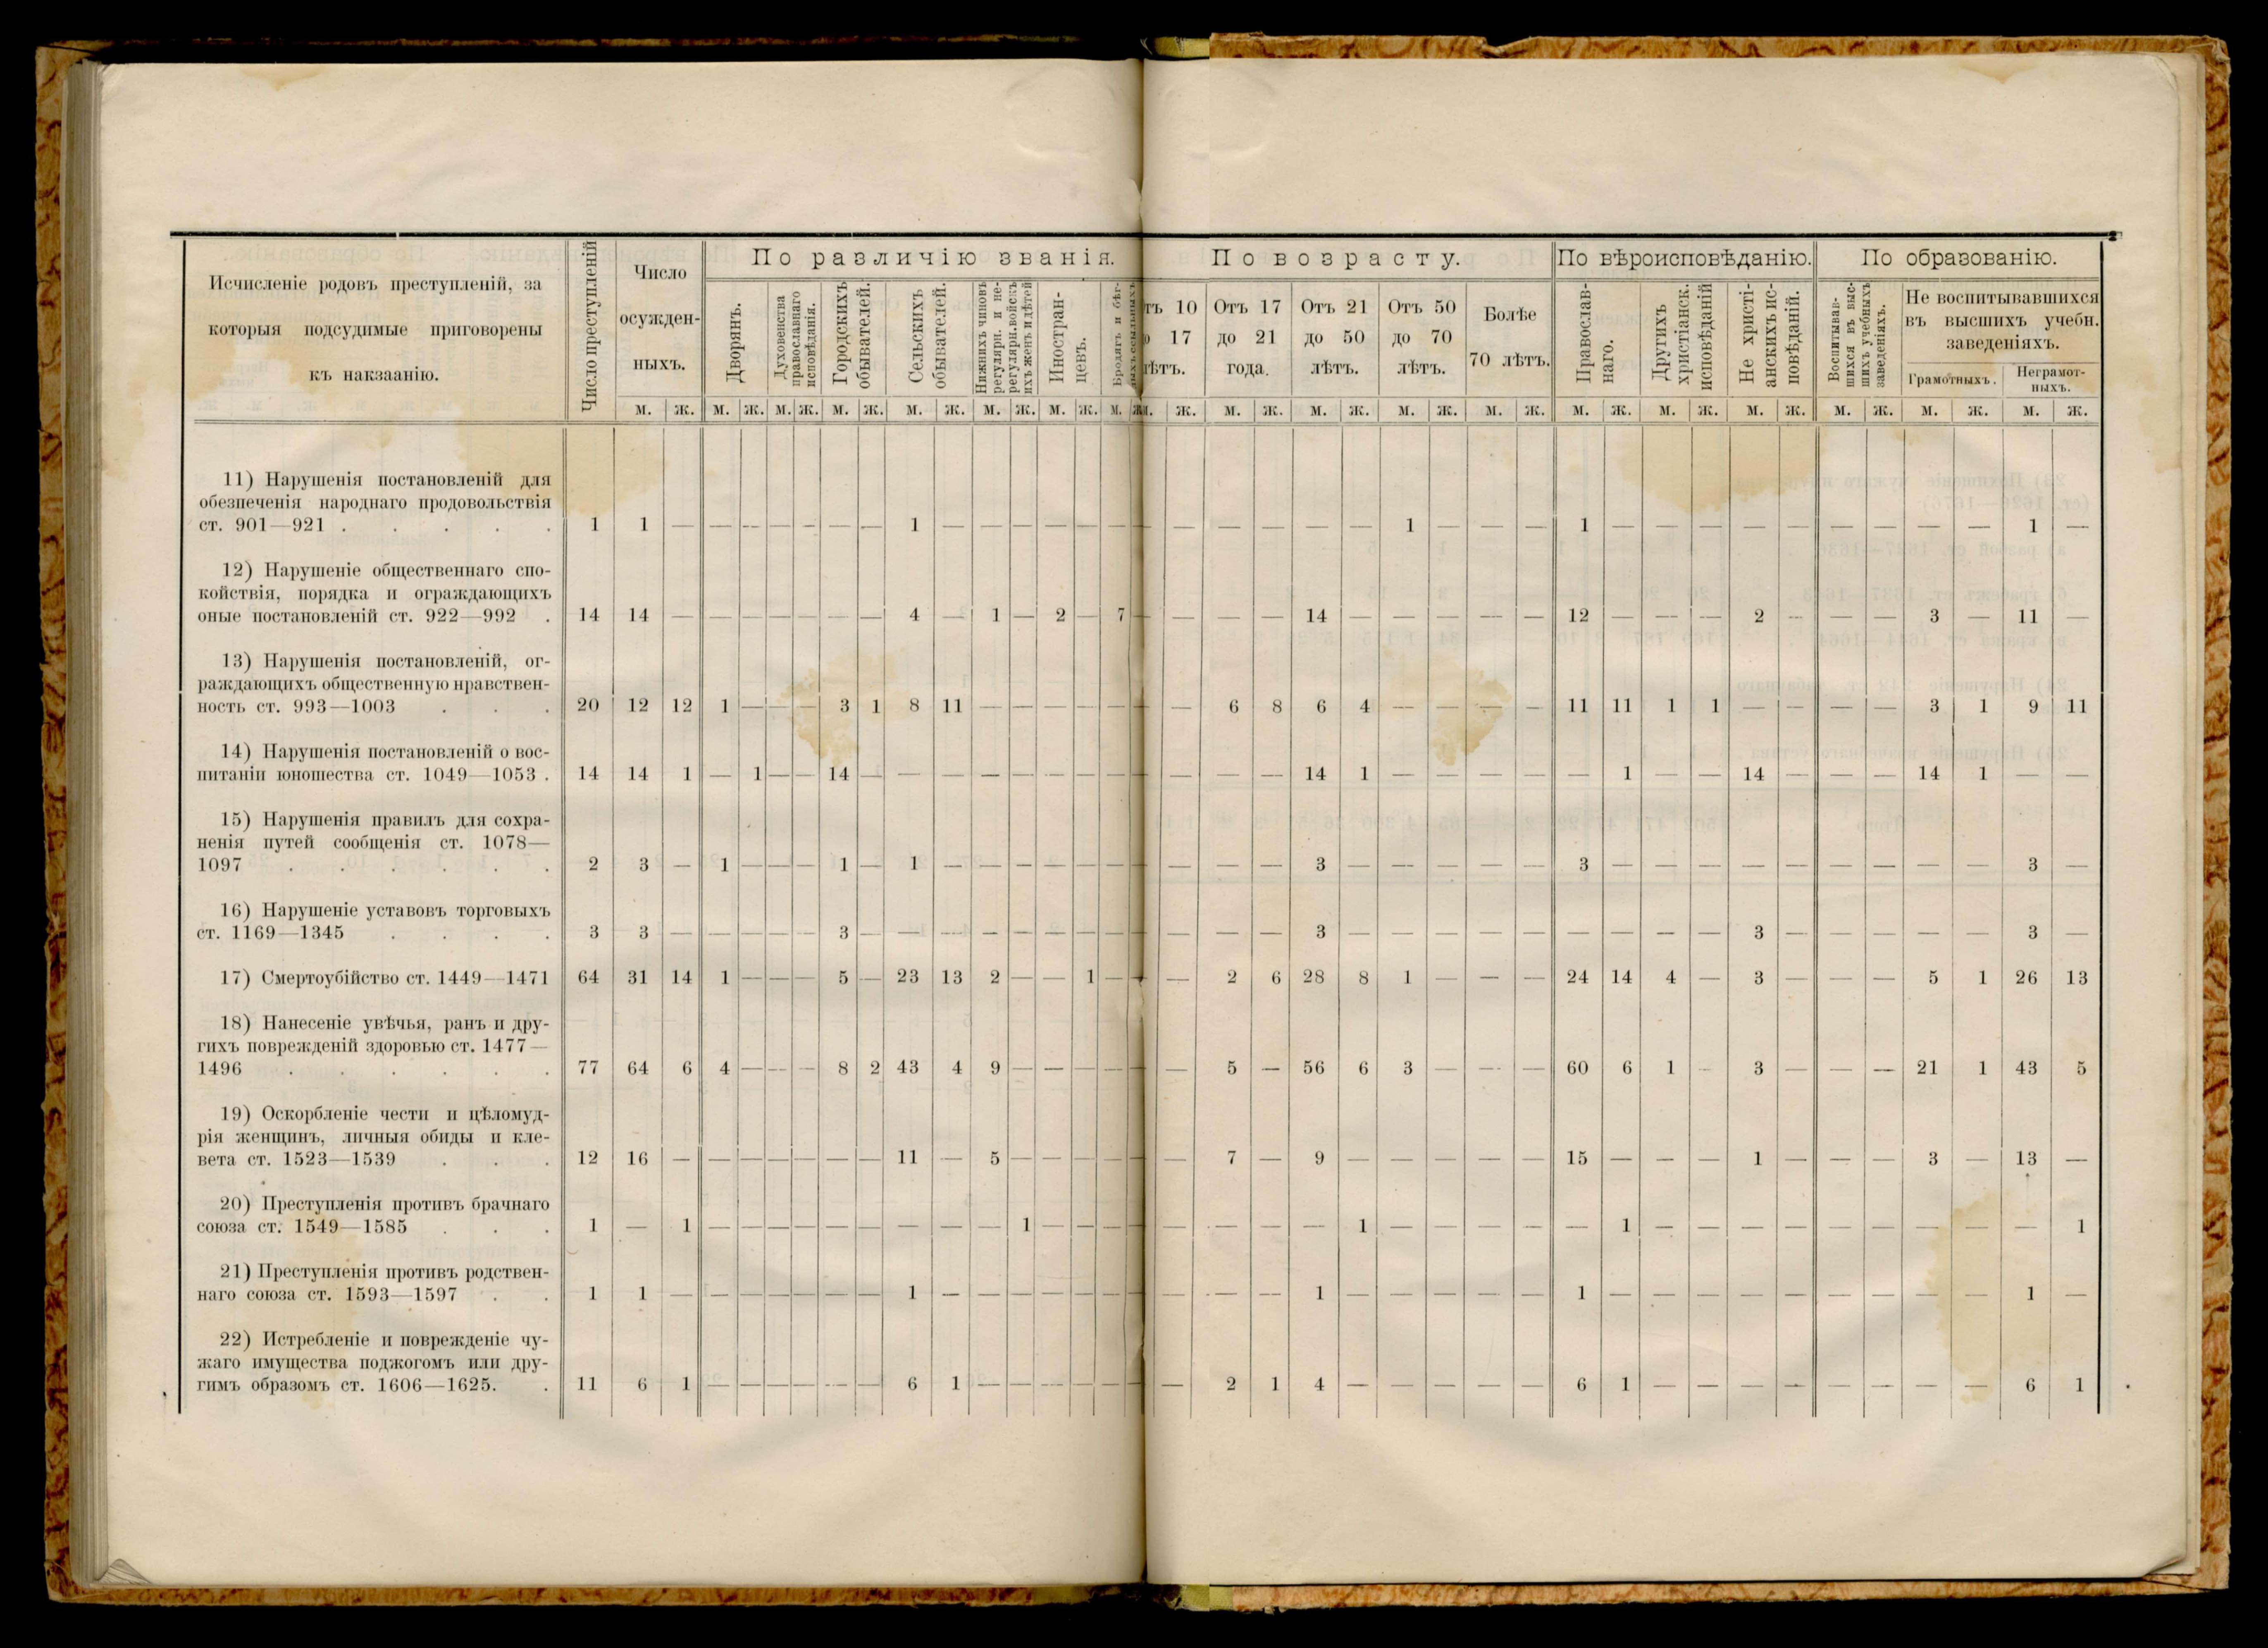 Исчисленіе родовъ преступленій, за
которыя подсудимые приговорены
къ наказанію.
Число преступленій
Число
осужден-
ныхъ.
По различію званія.
Дворянъ.
Духовенства
православнаго
исповѣданія.
Городскихъ
обывателей.
Сельскихъ
обывателей.
Нижнихъ чиновъ
регулярн. и не-
регулярн. войскъ
ихъ женъ и дѣтей
Иностран-
цевъ.
Бродягъ и бѣг-
лыхъ ссыльныхъ
По возрасту.
тъ 10
17
лѣтъ.
Отъ 17
до 21
года.
Отъ 21
до 50
лѣтъ.
Отъ 50
до 70
лѣтъ.
Болѣе
70 лѣтъ.
По вѣроисповѣданію.
Православ-
наго.
Другихъ
христіанск.
исповѣданій
Не христі-
анскихъ ис-
повѣданій.
По образованію.
Воспитывав-
шихся въ выс-
шихъ учебныхъ
заведеніяхъ.
Не воспитывавшихся
въ высшихъ учебн.
заведеніяхъ.
Грамотныхъ.
Неграмот-
ныхъ.
м. ж. м. ж. м. ж. м. ж. м. ж. м. ж. м. ж. м. ж. м. ж. м. ж. м. ж. м. ж. м. ж. м. ж. м. ж. м. ж. м. ж. м. ж.
11) Нарушенія постановленій для
обезпеченія народнаго продовольствія
ст. 901—921 . . . . . 1 1 — — — — — — — 1 — — — — — — — — — — — — 1 — — — 1 — — — — — — — — — 1 —
12) Нарушеніе общественнаго спо-
койствія, порядка и ограждающихъ
оные постановленій ст. 922—992 . 14 14 — — — — — — — 4 — 1 — 2 — 7 — — — — 14 — — — — — 12 — — — 2 — — — 3 — 11 —
13) Нарушенія постановленій, ог-
раждающихъ общественную нравствен-
ность ст. 993—1003 . . . 20 12 12 1 — — — 3 1 8 11 — — — — — — — 6 8 6 4 — — — — 11 11 1 1 — — — — 3 1 9 11
14) Нарушенія постановленій о вос-
питаніи юношества ст. 1049—1053 . 14 14 1 — 1 — — 14 — — — — — — — — — — — — 14 1 — — — — — 1 — — 14 — — — 14 1 — —
15) Нарушенія правилъ для сохра-
ненія путей сообщенія ст. 1078—
1097 . . . . . . 2 3 — 1 — — — 1 — 1 — — — — — — — — — — 3 — — — — — 3 — — — — — — — — — 3 —
16) Нарушеніе уставовъ торговыхъ
ст. 1169—1345 . . . . 3 3 — — — — — 3 — — — — — — — — — — — — 3 — — — — — — — — — 3 — — — — — 3 —
17) Смертоубійство ст. 1449—1471 64 31 14 1 — — — 5 — 23 13 2 — — 1 — — — 2 6 28 8 1 — — — 24 14 4 — 3 — — — 5 1 26 13
18) Нанесеніе увѣчья, ранъ и дру-
гихъ поврежденій здоровью ст. 1477—
1496 . . . . . . 77 64 6 4 — — — 8 2 43 4 9 — — — — — — 5 — 56 6 3 — — — 60 6 1 — 3 — — — 21 1 43 5
19) Оскорбленіе чести и цѣломуд-
рія женщинъ, личныя обиды и кле-
вета ст. 1523—1539 . . . 12 16 — — — — — — — 11 — 5 — — — — — — 7 — 9 — — — — — 15 — — — 1 — — — 3 — 13 —
20) Преступленія противъ брачнаго
союза ст. 1549—1585 . . . 1 — 1 — — — — — — — — — 1 — — — — — — — — 1 — — — — — 1 — — — — — — — — — 1
21) Преступленія противъ родствен-
наго союза ст. 1593—1597 . . 1 1 — — — — — — — 1 — — — — — — — — — — 1 — — — — — 1 — — — — — — — — — 1 —
22) Истребленіе и поврежденіе чу-
жаго имущества поджогомъ или дру-
гимъ образомъ ст. 1606—1625. . 11 6 1 — — — — — — 6 1 — — — — — — — 2 1 4 — — — — — 6 1 — — — — — — — — 6 1